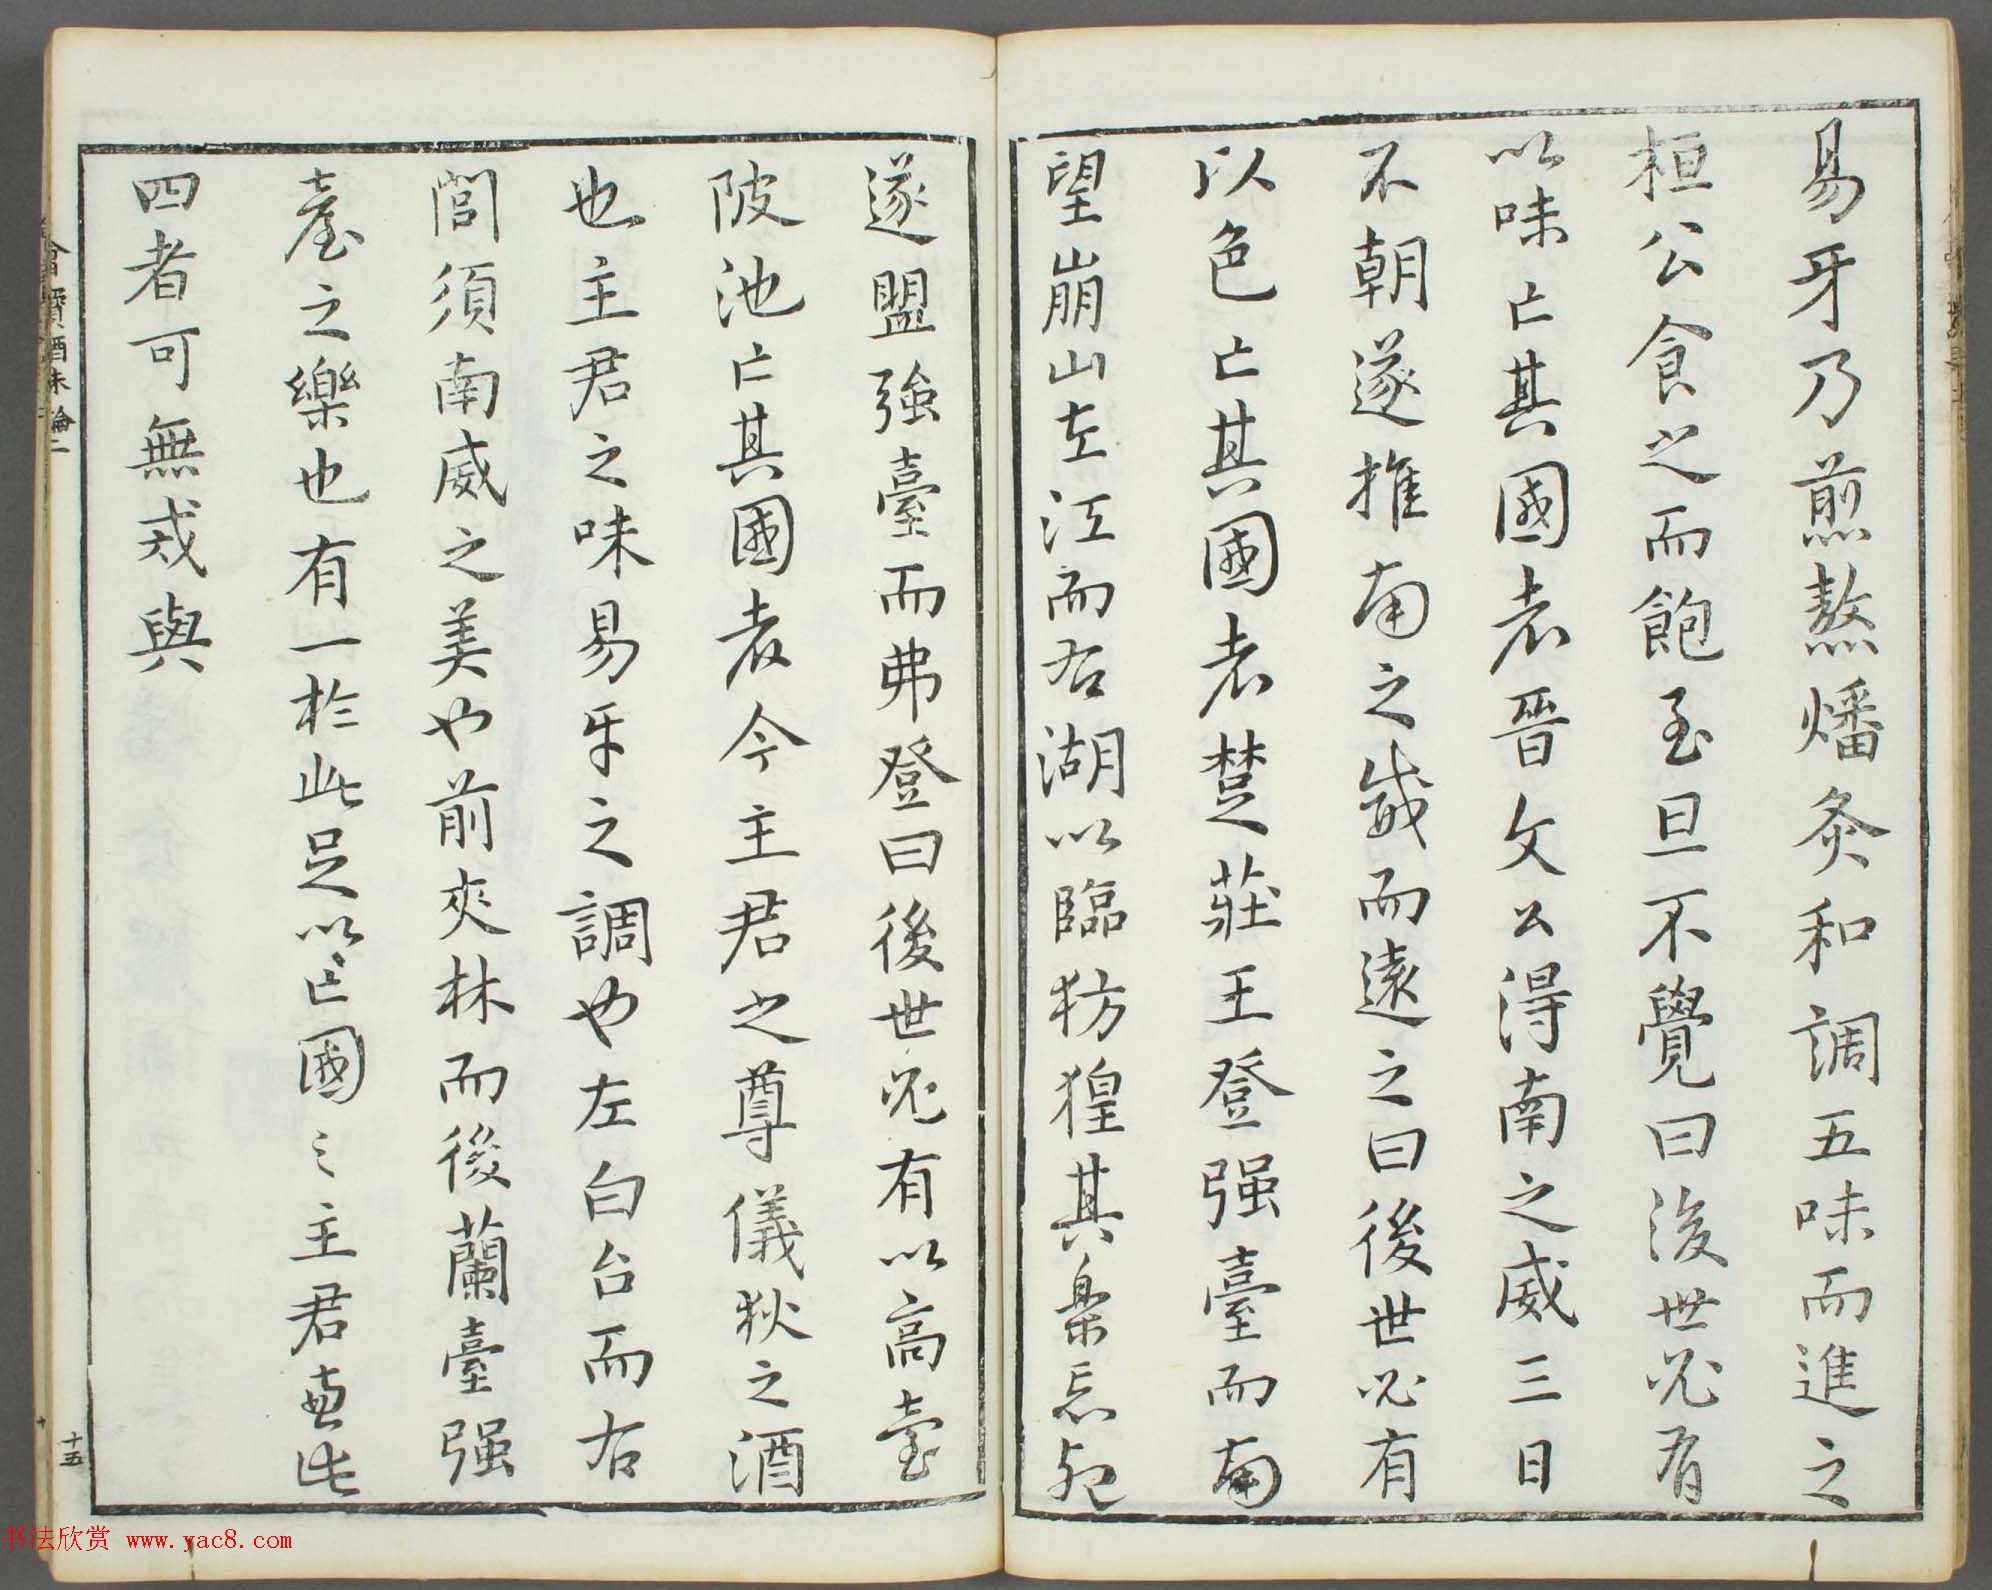 易牙乃煎熬燔炙和調五味而進之
桓公食之而飽至旦不覺曰後世必有
以味亡其國者晉文公得南之威三日
不朝遂推南之威而遠之曰後世必有
以色亡其國者楚莊王登强臺而南
望崩山左江而右湖以臨彷徨其樂忘死
遂盟強臺而弗登曰後世必有以高臺
陂池亡其國者今主君之尊儀狄之酒
也主君之味易牙之調也左白台而右
閭須南威之美也前夾林而後蘭臺强
臺之樂也有一於此足以亡國〻主君兼此
四者可無戒與
十五
书法欣赏 www.yac8.com